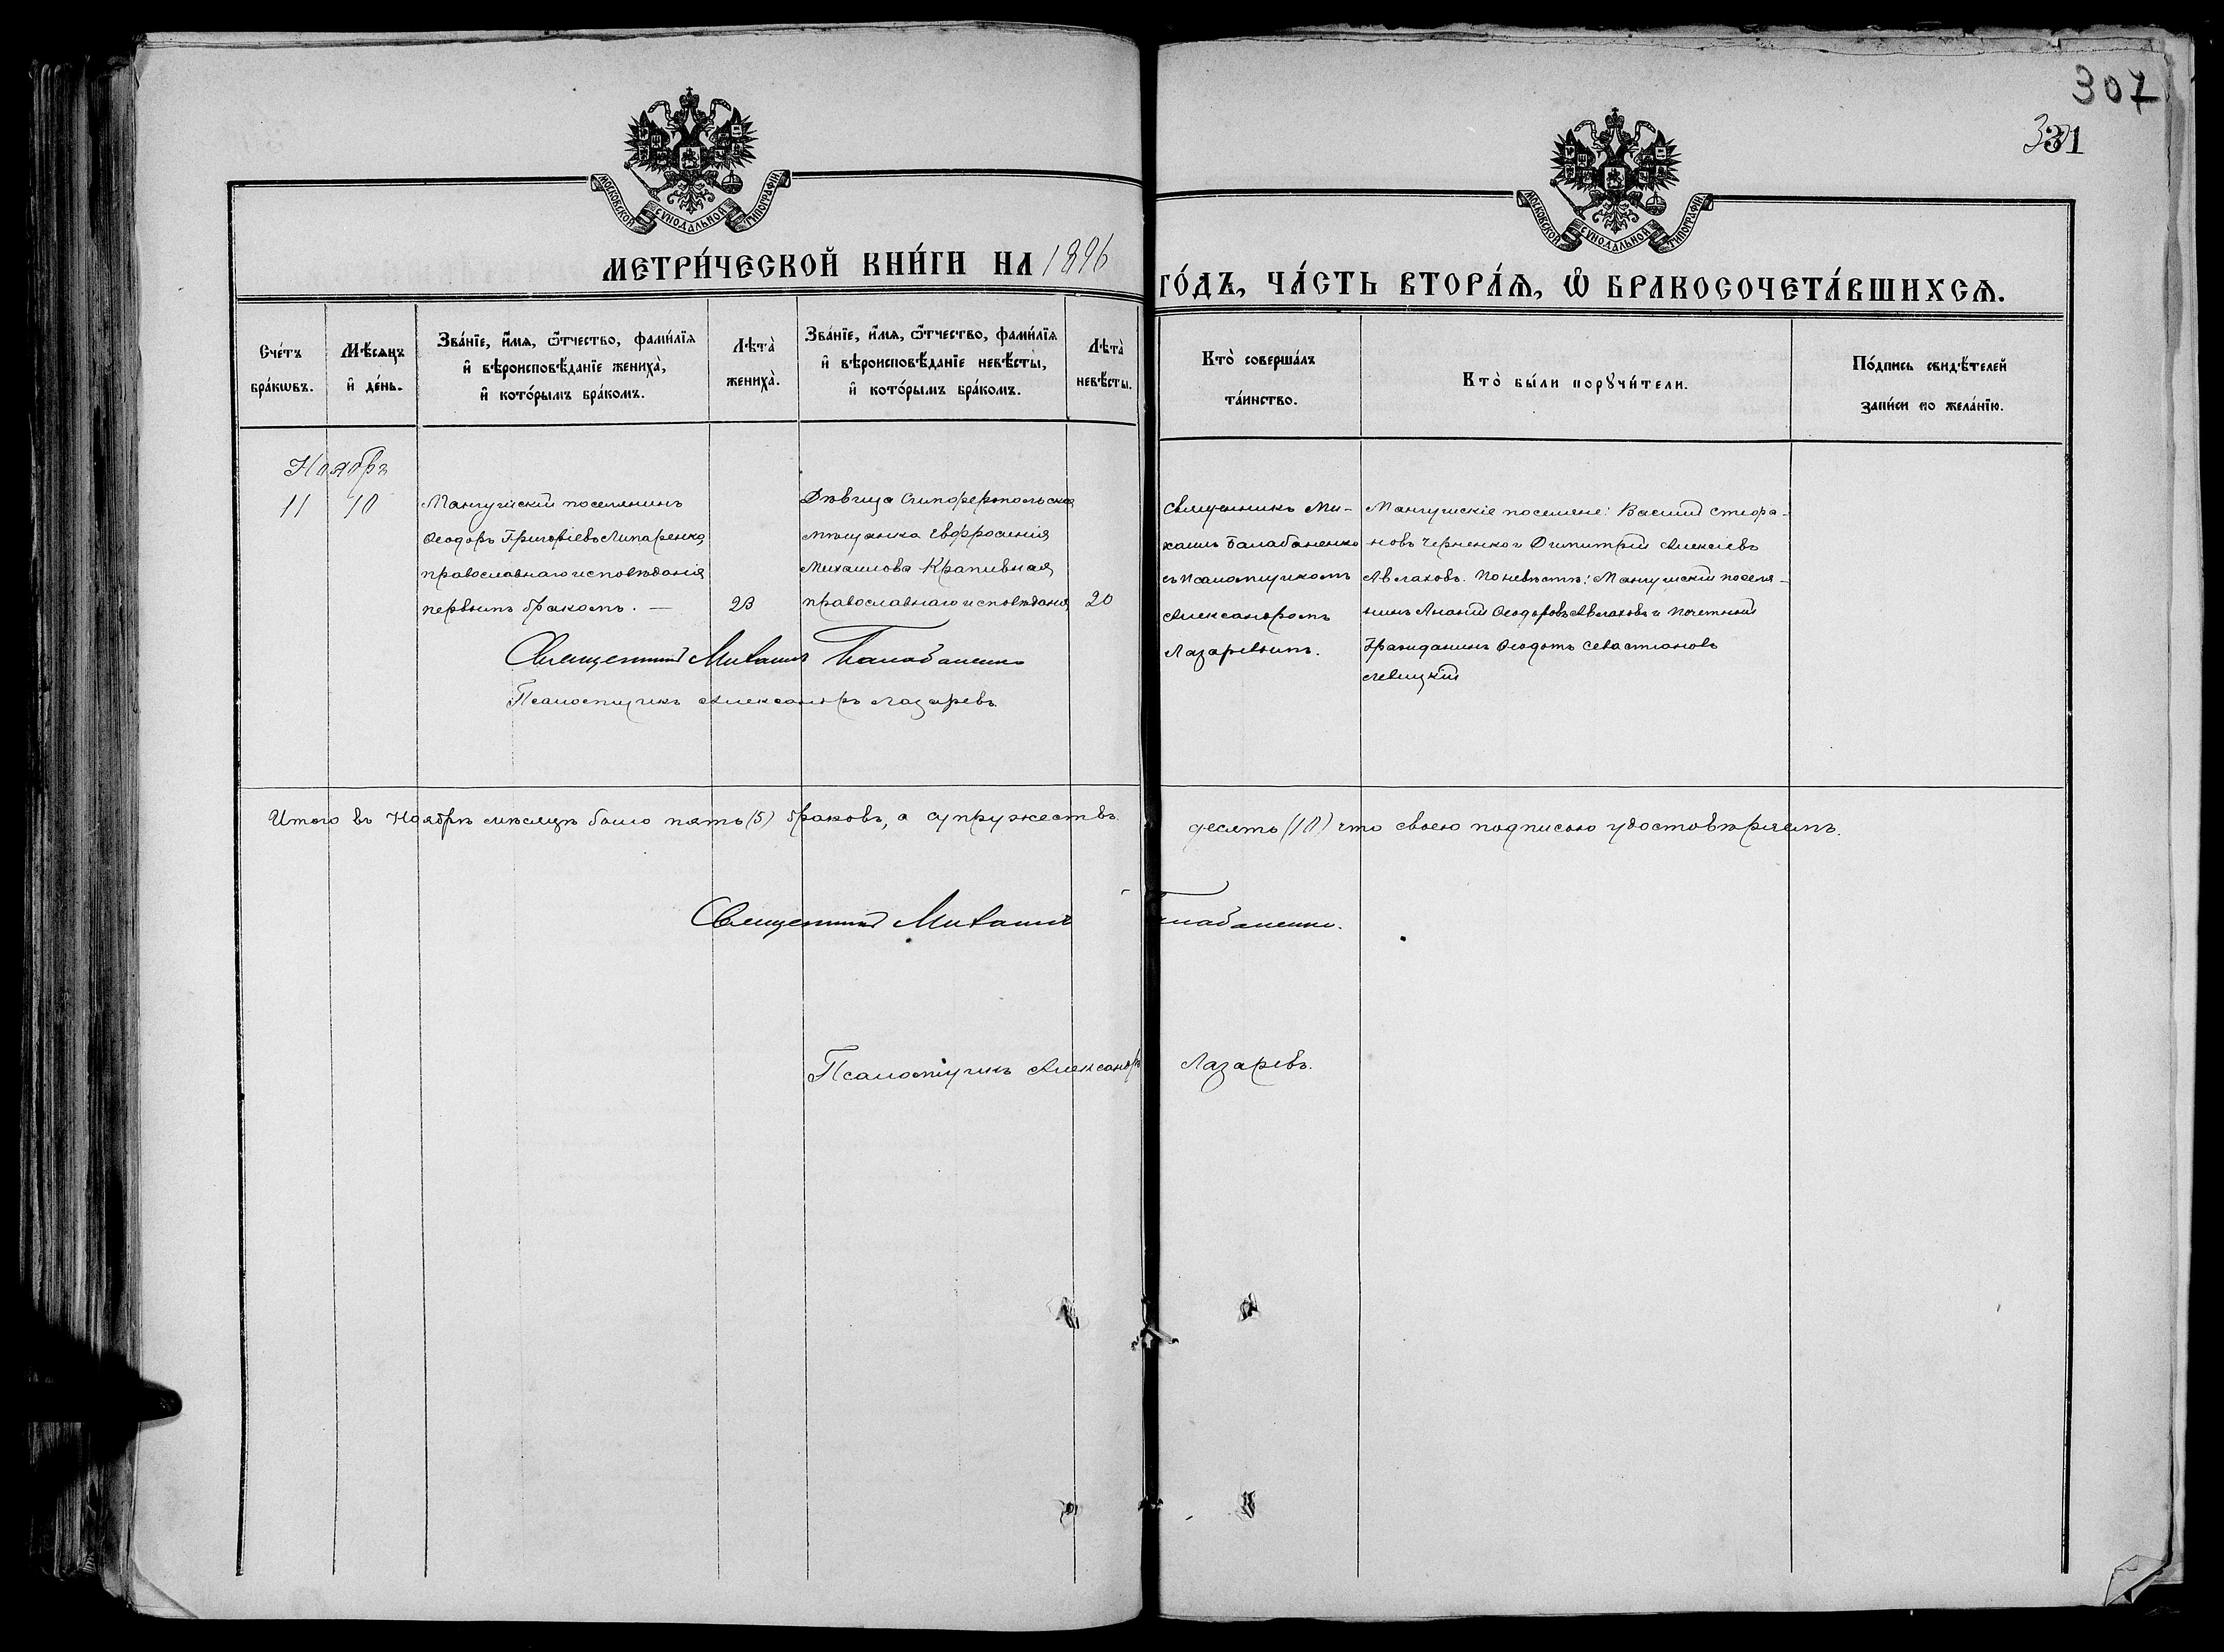 307
331
МОСКОВСКОЙ СѴНОДАЛЬНОЙ ТИПОГРАФІИ
МОСКОВСКОЙ СѴНОДАЛЬНОЙ ТИПОГРАФІИ
МЕТРИ́ЧЕСКОЙ КНИ́ГИ НА 1896 ГО́ДЪ, ЧА́СТЬ ВТОРА́Ѧ, Ѡ҆ БРАКОСОЧЕТА́ВШИХСѦ.
Сче́тъ бра́кѡвъ.
Мѣ́сѧцъ и҆ де́нь.
Зва́нїе, и҆́мѧ, ѻ҆́тчество, фамі́лїѧ и҆ вѣроисповѣ́данїе жениха̀, и҆ кото́рымъ бра́комъ.
Лѣта̀ жениха̀.
Зва́нїе, и҆́мѧ, ѻ҆́тчество, фамі́лїѧ и҆ вѣроисповѣ́данїе невѣ́сты, и҆ кото́рымъ бра́комъ.
Лѣта̀ невѣ́сты.
Кто̀ соверша́лъ та́инство.
Кто̀ бы́ли порꙋчи́тели.
По́дпись свидѣ́телей за́писи по жела́нїю.
Ноябрь
11
10
Мангушскій поселянинъ
Ѳеодоръ Григоріевъ Липаренко,
православнаго исповѣданія
первымъ бракомъ. —
23
Дѣвица Симферопольская
мѣщанка Евфросинія
Михаилова Крапивная
православнаго исповѣданія
20
Священникъ Ми-
хаилъ Балабаненко
съ псаломщикомъ
Александромъ
Лазаревымъ.
Мангушскіе поселяне: Василій Стефа-
новъ Черненко и Димитрій Алексіевъ
Авлаховъ. По невѣстѣ: Мангушскій поселя-
нинъ Ананій Ѳеодоровъ Авлаховъ и Почетный
Гражданинъ Ѳеодотъ Севастіановъ
Левицкій
Священникъ Михаилъ Балабаненко
Псаломщикъ Александръ Лазаревъ.
Итого въ Ноябрѣ мѣсяцѣ было пять (5) браковъ, а супружествъ десять (10) что своею подписью удостовѣряемъ.
Священникъ Михаилъ Балабаненко.
Псаломщикъ Александръ Лазаревъ.